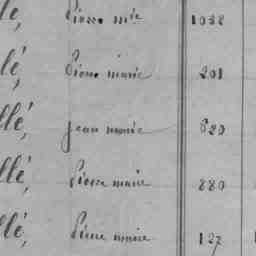 lé, Pierre mie 1038
lé, Pierre marie 201
llé, jean marie 620
llé, Pierre marie 880
llé, Pierre marie 127